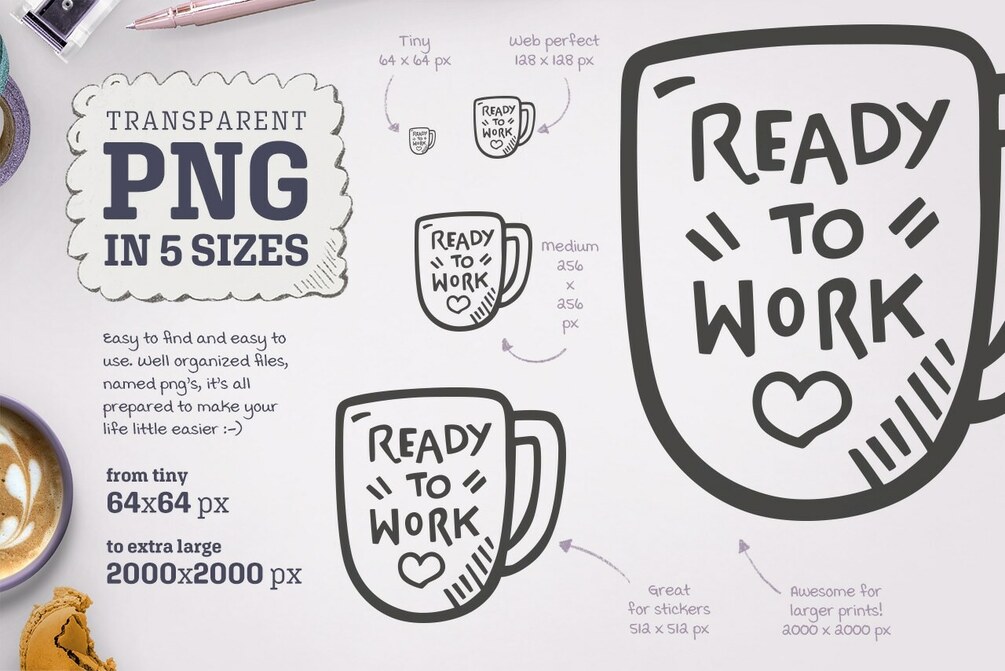 TRANSPARENT
PNG
IN 5 SIZES
Easy to find and easy to
use. Well organized files,
named png's, it's all
prepared to make your
life little easier :-)
from tiny
64x64 px
to extra large
2000x2000 px
Tiny
64 x 64 px
Web perfect
128 x 128 px
READY
TO
WORK
READY
TO
WORK
READY
TO
WORK
medium
256
x
256
px
READY
TO
WORK
Great
for stickers
512 x 512 px
READY
TO
WORK
Awesome for
larger prints!
2000 x 2000 px